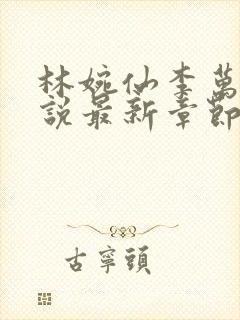 林婉仙李萬
說最新章節
古寧頭